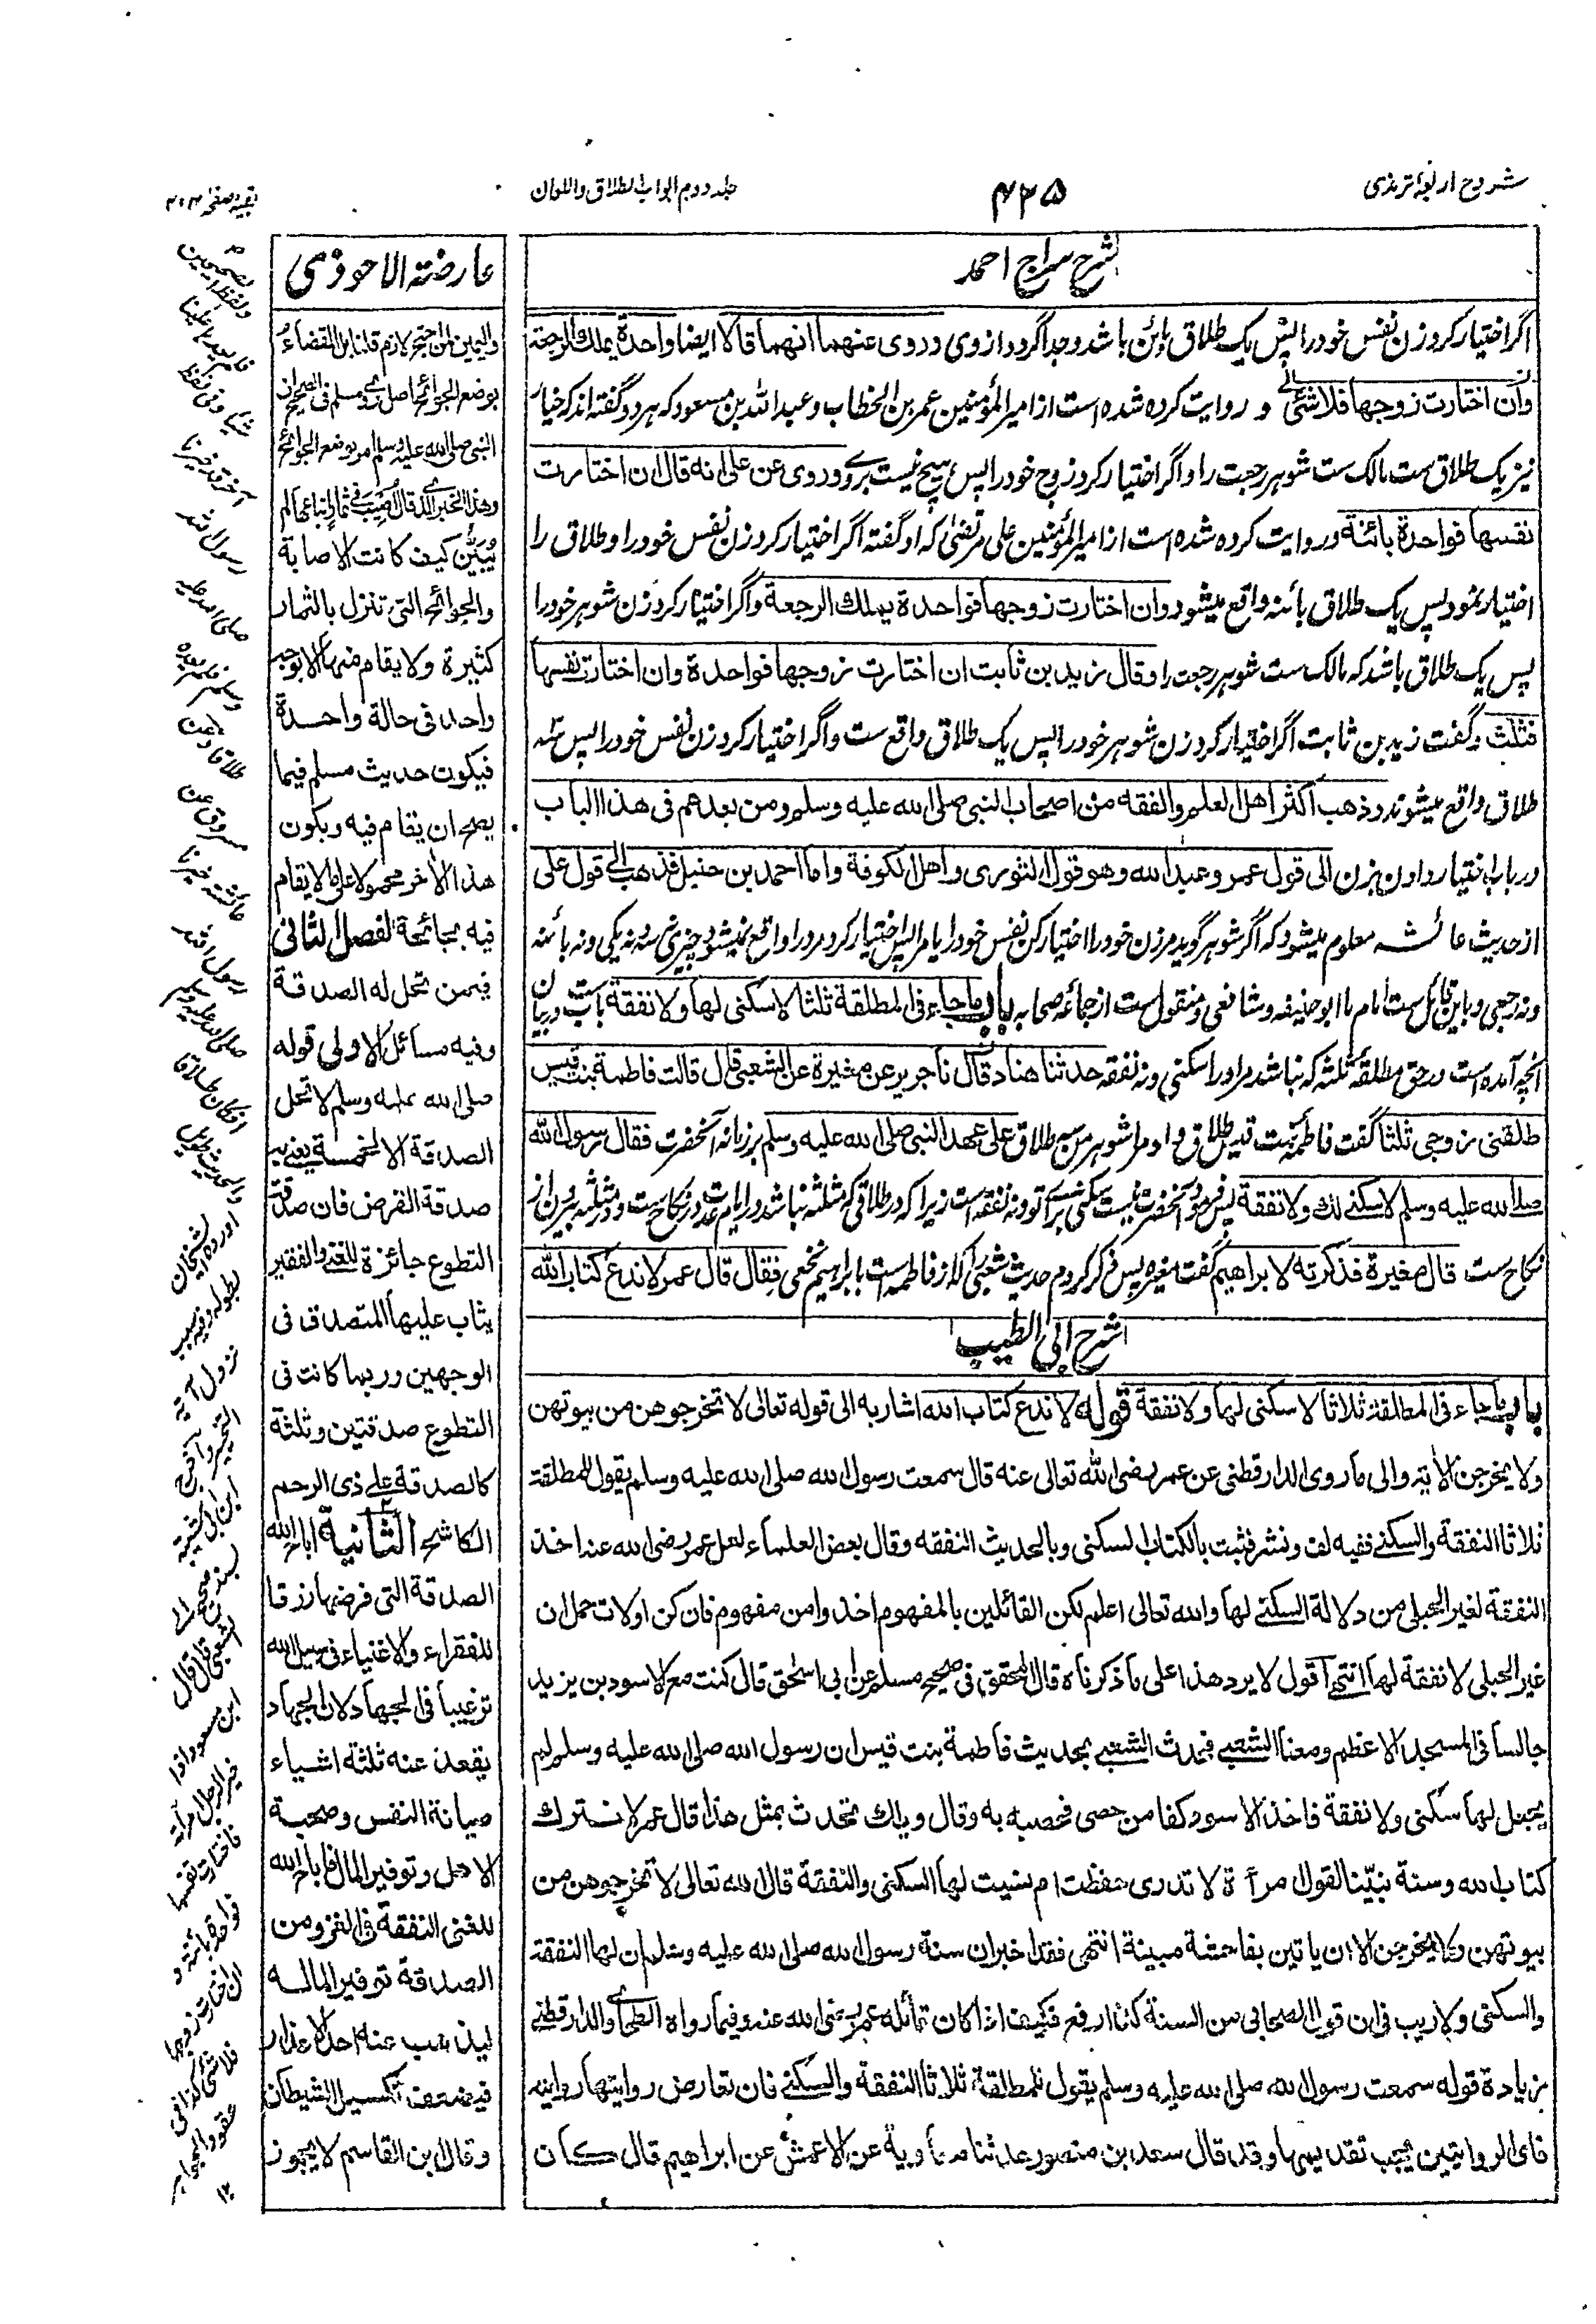 شروح اربعۂ ترمذی
۴۲۵
جلد دوم ابواب الطلاق واللعان
بقیہ صفحہ ۴۰۳
شرح سراج احمد
اگر اختیار کرد زن نفس خود را پس یک طلاق بائن باشد و جدا گردد از وی و روی عنهما انهما قالا ایضا واحدة یملك الرجعة
وان اختارت زوجها فلا شئ و روایت کرده شده است از امیر المؤمنین عمر بن الخطاب و عبد الله بن مسعود که هر دو گفته اند که خیار
نیز یک طلاق ست مالک ست شوهر رجعت را و اگر اختیار کرد زوج خود را پس هیچ نیست بروے وروی عن علی انه قال ان اختارت
نفسها فواحدة بائنة و روایت کرده شده است از امیر المؤمنین علی مرتضیٰ که او گفته اگر اختیار کرد زن نفس خود را و طلاق را
اختیار نمود پس یک طلاق بائنه واقع میشود وان اختارت زوجها فواحدة یملك الرجعة و اگر اختیار کرد زن شوهر خود را
پس یک طلاق باشد که مالک ست شوهر رجعت را وقال زید بن ثابت ان اختارت زوجها فواحدة وان اختارت نفسها
فثلث و گفت زید بن ثابت اگر اختیار کرد زن شوهر خود را پس یک طلاق واقع ست و اگر اختیار کرد زن نفس خود را پس سه
طلاق واقع میشوند وذهب اكثر اهل العلم والفقه من اصحاب النبی صلی الله علیه وسلم ومن بعدهم فی هذا الباب
در باب اختیار دادن بزن الی قول عمر وعبد الله وهو قول الثوری واهل الكوفة واما احمد بن حنبل فذهب الی قول علی
از حدیث عائشه معلوم میشود که اگر شوهر گوید مر زن خود را اختیار کن نفس خود را یا مرا پس اختیار کرد مرد را واقع نمیشود چیزی نه سه و نه یکی و نه بائنه
ونه رجعی و باین قائل ست امام ما ابو حنیفه و شافعی و منقول ست از جماعه صحابه باب ما جاء فی المطلقة ثلثا لا سكنی لها ولا نفقة باب در بیان
آنچه آمده است در حق مطلقه ثلثه که نباشد مر او را سکنی و نه نفقه حدثنا هناد قال نا جریر عن مغیرة عن الشعبی قال قالت فاطمة بنت قیس
طلقنی زوجی ثلثا گفت فاطمه بنت قیس طلاق داد مرا شوهر من سه طلاق علی عهد النبی صلی الله علیه وسلم بر زمانه آنحضرت فقال رسول الله
صلی الله علیه وسلم لا سكنی لك ولا نفقة پس فرمود آنحضرت نیست سکنی برای تو و نه نفقه است زیرا که در طلاقی که ثلثه نباشد در ایام عدت در نکاح ست و در ثلثه بیرون از
نکاح ست قال مغیرة فذكرته لابراهیم گفت مغیره پس ذکر کردم حدیث شعبی را که از فاطمه است با ابراهیم نخعی فقال قال عمر لا ندع كتاب الله
شرح ابی الطیب
باب ما جاء فی المطلقة ثلاثا لا سكنی لها ولا نفقة قوله لا ندع كتاب الله اشار به الی قوله تعالی لا تخرجوهن من بیوتهن
ولا یخرجن الآیة والی ما روی الدارقطنی عن عمر رضی الله تعالی عنه قال سمعت رسول الله صلی الله علیه وسلم یقول للمطلقة
ثلاثا النفقة والسكنی ففیه لف ونشر فثبت بالكتاب السكنی وبالحدیث النفقه وقال بعض العلماء لعل عمر رضی الله عنه اخذ
النفقة لغیر الحبلی من دلالة السكنی لها والله تعالی اعلم لكن القائلین بالمفهوم اخذوا من مفهوم فان كن اولات حمل ان
غیر الحبلی لا نفقة لها انتهی اقول لا یرد هذا علی ما ذكرناه قال المحقق فی صحیح مسلم عن ابی اسحق قال كنت مع الاسود بن یزید
جالسا فی المسجد الاعظم ومعنا الشعبی فحدث الشعبی بحدیث فاطمة بنت قیس ان رسول الله صلی الله علیه وسلم لم
یجعل لها سكنی ولا نفقة فاخذ الاسود كفا من حصی فحصبه به وقال ویلك تحدث بمثل هذا قال عمر لا نترك
كتاب الله وسنة نبینا لقول امرأة لا تدری حفظت ام نسیت لها السكنی والنفقة قال الله تعالی لا تخرجوهن من
بیوتهن ولا یخرجن الا ان یاتین بفاحشة مبینة انتهی فقد اخبر ان سنة رسول الله صلی الله علیه وسلم ان لها النفقة
والسكنی ولا ریب فی ان قول الصحابی من السنة كذا رفع فكیف اذا كان قائله عمر رضی الله عنه وفیما رواه الطحاوی والدارقطنی
بزیادة قوله سمعت رسول الله صلی الله علیه وسلم یقول للمطلقة ثلاثا النفقة والسكنی فان تعارض روایتها روایته
فای الروایتین یجب تقدیمها وقد قال سعد بن منصور حدثنا معاویة عن الاعمش عن ابراهیم قال كان
عارضة الاحوذی
والیمین لمن احتج لازم قلنا بل القضاء
بوضع الجوائح اصل روی مسلم فی الصحیح ان
النبی صلی الله علیه وسلم امر بوضع الجوائح
وهذا الخبر الذی قال اصیب فی ثمار ابتاعها لم
یبین كیف كانت الاصابة
والجوائح التی تنزل بالثمار
كثیرة ولا یقام منها الا بوجه
واحد فی حالة واحدة
فیكون حدیث مسلم فیما
یصح ان یقام فیه ویكون
هذا الآخر محمولا علی ما لا یقام
فیه بجائحة الفصل الثانی
فیمن تحل له الصدقة
وفیه مسائل الاولی قوله
صلی الله علیه وسلم لا تحل
الصدقة الا لخمسة یعنی به
صدقة الفرض فان صدقة
التطوع جائزة للغنی والفقیر
یثاب علیها المتصدق فی
الوجهین وربما كانت فی
التطوع صدقتین وثلثة
كالصدقة علی ذی الرحم
الكاشح الثانیة اباح الله
الصدقة التی فرضها رزقا
للفقراء والاغنیاء فی سبیل الله
ترغیبا فی الجهاد لان الجهاد
یقعد عنه ثلثة اشیاء
صیانة النفس وصحبة
الاهل وتوفیر المال فاباح الله
للغنی النفقة فی الغزو من
الصدقة توفیرا لماله
لیذهب عنه احد الاعذار
فیضعف تكسیل الشیطان
وقال ابن القاسم لا یجوز
رسول الله
صلی الله علیه
مسروق عن
عائشة خیرنا
رسول الله
صلی الله علیه وسلم
افكان طلاقا
اورده الشیخان
نزول آیة
التخییر واخرج
ابن ابی شیبة
بسند صحیح الی
الشعبی قال قال
ابن مسعود اذا
خیر الرجل امرأته
فاختارت نفسها
فواحدة بائنة و
ان اختارت زوجها
فلا شئ كذا فی
عقود الجواهر
۱۲